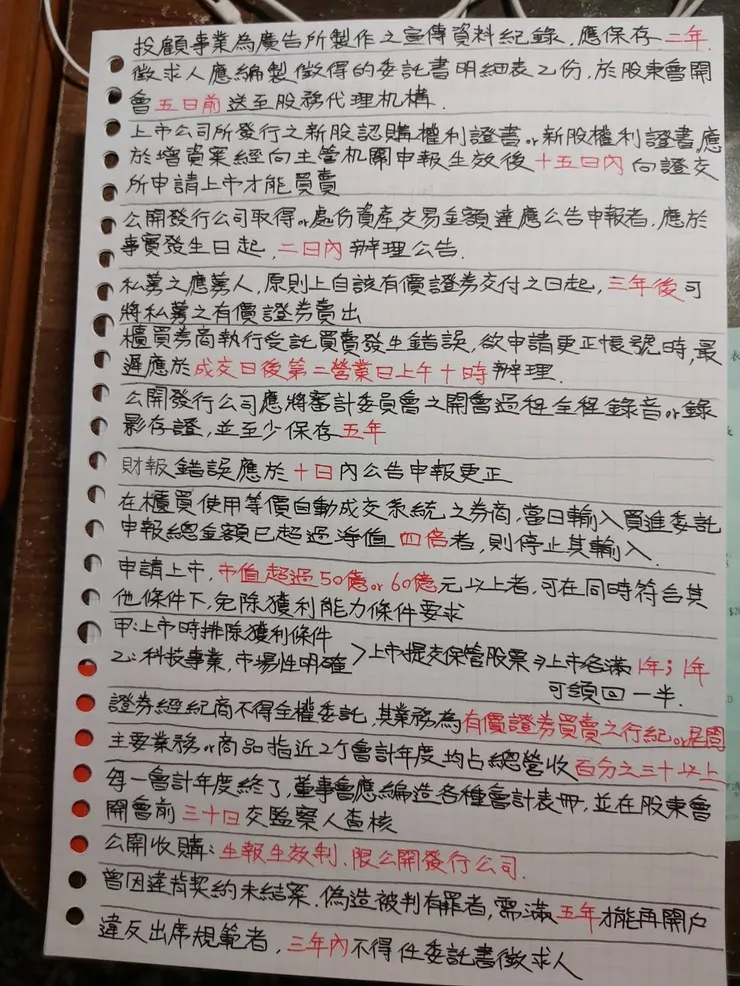 投顧事業為廣告所製作之宣傳資料紀錄，應保存二年.
徵求人應編製徵得的委託書明細表乙份，於股東會開
會五日前送至股務代理机構.
上市公司所發行之新股認購權利證書or新股權利證書，應
於增資案經向主管机關申報生效後十五日內向證交
所申請上市才能買賣
公開發行公司取得or處份資產，交易金額達應公告申報者，應於
事實發生日起，二日內辦理公告.
私募之應募人，原則上自該有價證券交付之日起，三年後可
將私募之有價證券賣出
櫃買券商執行受託買賣發生錯誤，欲申請更正帳號時，最
遲應於成交日後第二營業日上午十時辦理.
公開發行公司應將審計委員會之開會過程全程錄音or錄
影存證，並至少保存五年
財報錯誤應於十日內公告申報更正
在櫃買使用等價自動成交系統之券商，當日輸入買進委託
申報總金額已超過淨值四倍者，則停止其輸入.
申請上市，市值超過50億or60億元以上者，可在同時符合其
他條件下，免除獲利能力條件要求
甲：上市時排除獲利條件
乙：科技事業，市場性明確>上市提交保管股票⇒上市各滿1年；1年
可領回一半.
證券經紀商不得全權委託，其業務為有價證券買賣之行紀or居間
主要業務or商品指近2个會計年度均占總營收百分之三十以上
每一會計年度終了，董事會應編造各種會計表冊，並在股東會
開會前三十日交監察人查核
公開收購：生報生效制.限公開發行公司.
曾因違背契約未結案.偽造被判有罪者，需滿五年才能再開戶
違反出席規範者，三年內不得任委託書徵求人